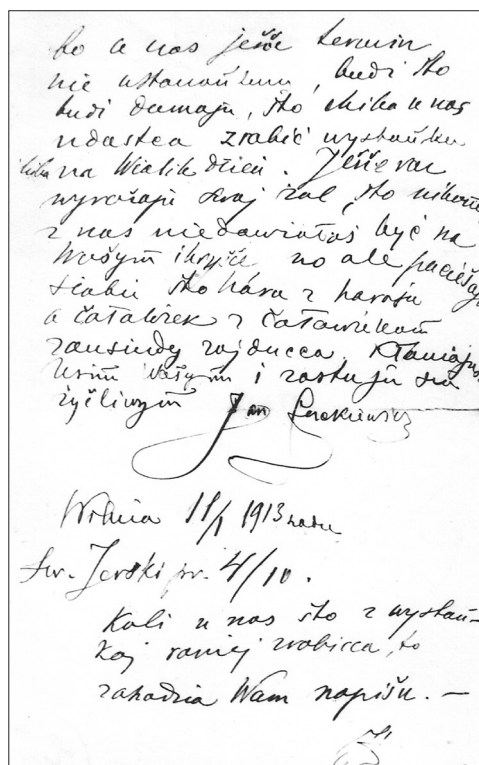 bo u nas ješče termin
nie ustanoŭleny, budź što
budź dumaju, što chiba u nas
udastca zrabić wystaŭku
chiba na Wialik dzień. Ješče raz
wyražaju swaj žal, što nikomu
z nas niedawiałoś być na
Wašym ihryščy no ale paciešaju
siabie što hara z haroju
a čaławiek z čaławiekam
zausiudy zojducca. Kłaniajusia
Usim Wašym i zastajuś sa
zyčliwym Jan Luckiewicz
Wilnia 11/I 1913 hodu
Św. Jerski pr. 4/10.
Kali u nas što z wystaŭ-
kaj raniej zrobicca, to
zahadzia Wam napišu. —